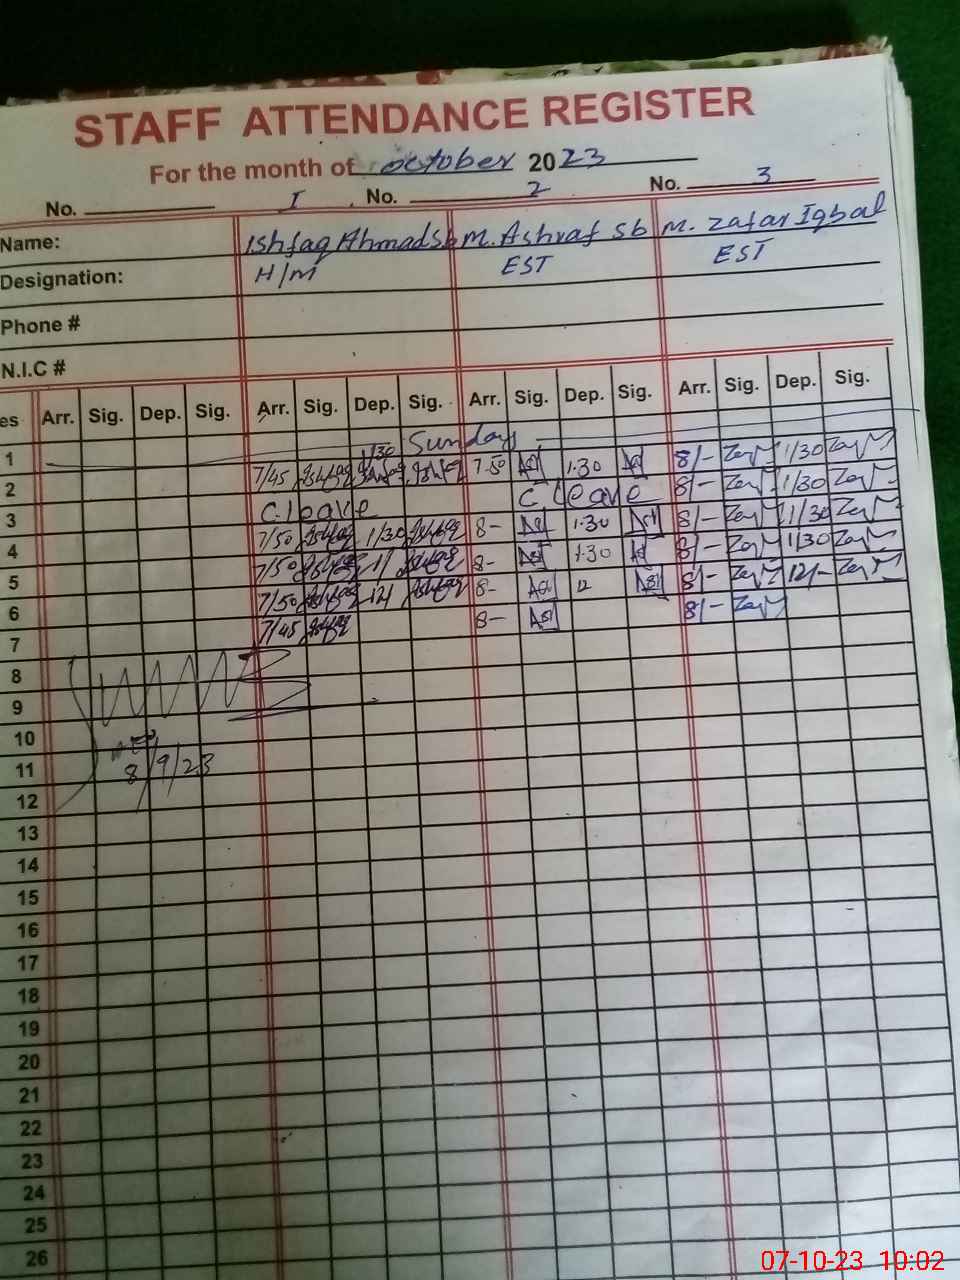 STAFF ATTENDANCE REGISTER
For the month of October 2023
No. I No. 2 No. 3
Name: Ishfaq Ahmad Sb M. Ashraf Sb M. Zafar Iqbal
Designation: H/M EST EST
Phone #
N.I.C #
es Arr. Sig. Dep. Sig. Arr. Sig. Dep. Sig. Arr. Sig. Dep. Sig. Arr. Sig. Dep. Sig.
1 Sunday
2 7/45 1/30 7-50 1-30 8/- 1/30
3 C. leave C. leave 8/- 1/30
4 7/50 1/30 8- 1-30 8/- 1/30
5 7/50 1/ 8- 1-30 8/- 1/30
6 7/50 12/ 8- 12 8/- 12/-
7 7/45 8- 8/-
8
9
10
11 8/9/23
12
13
14
15
16
17
18
19
20
21
22
23
24
25
26
07-10-23 10:02